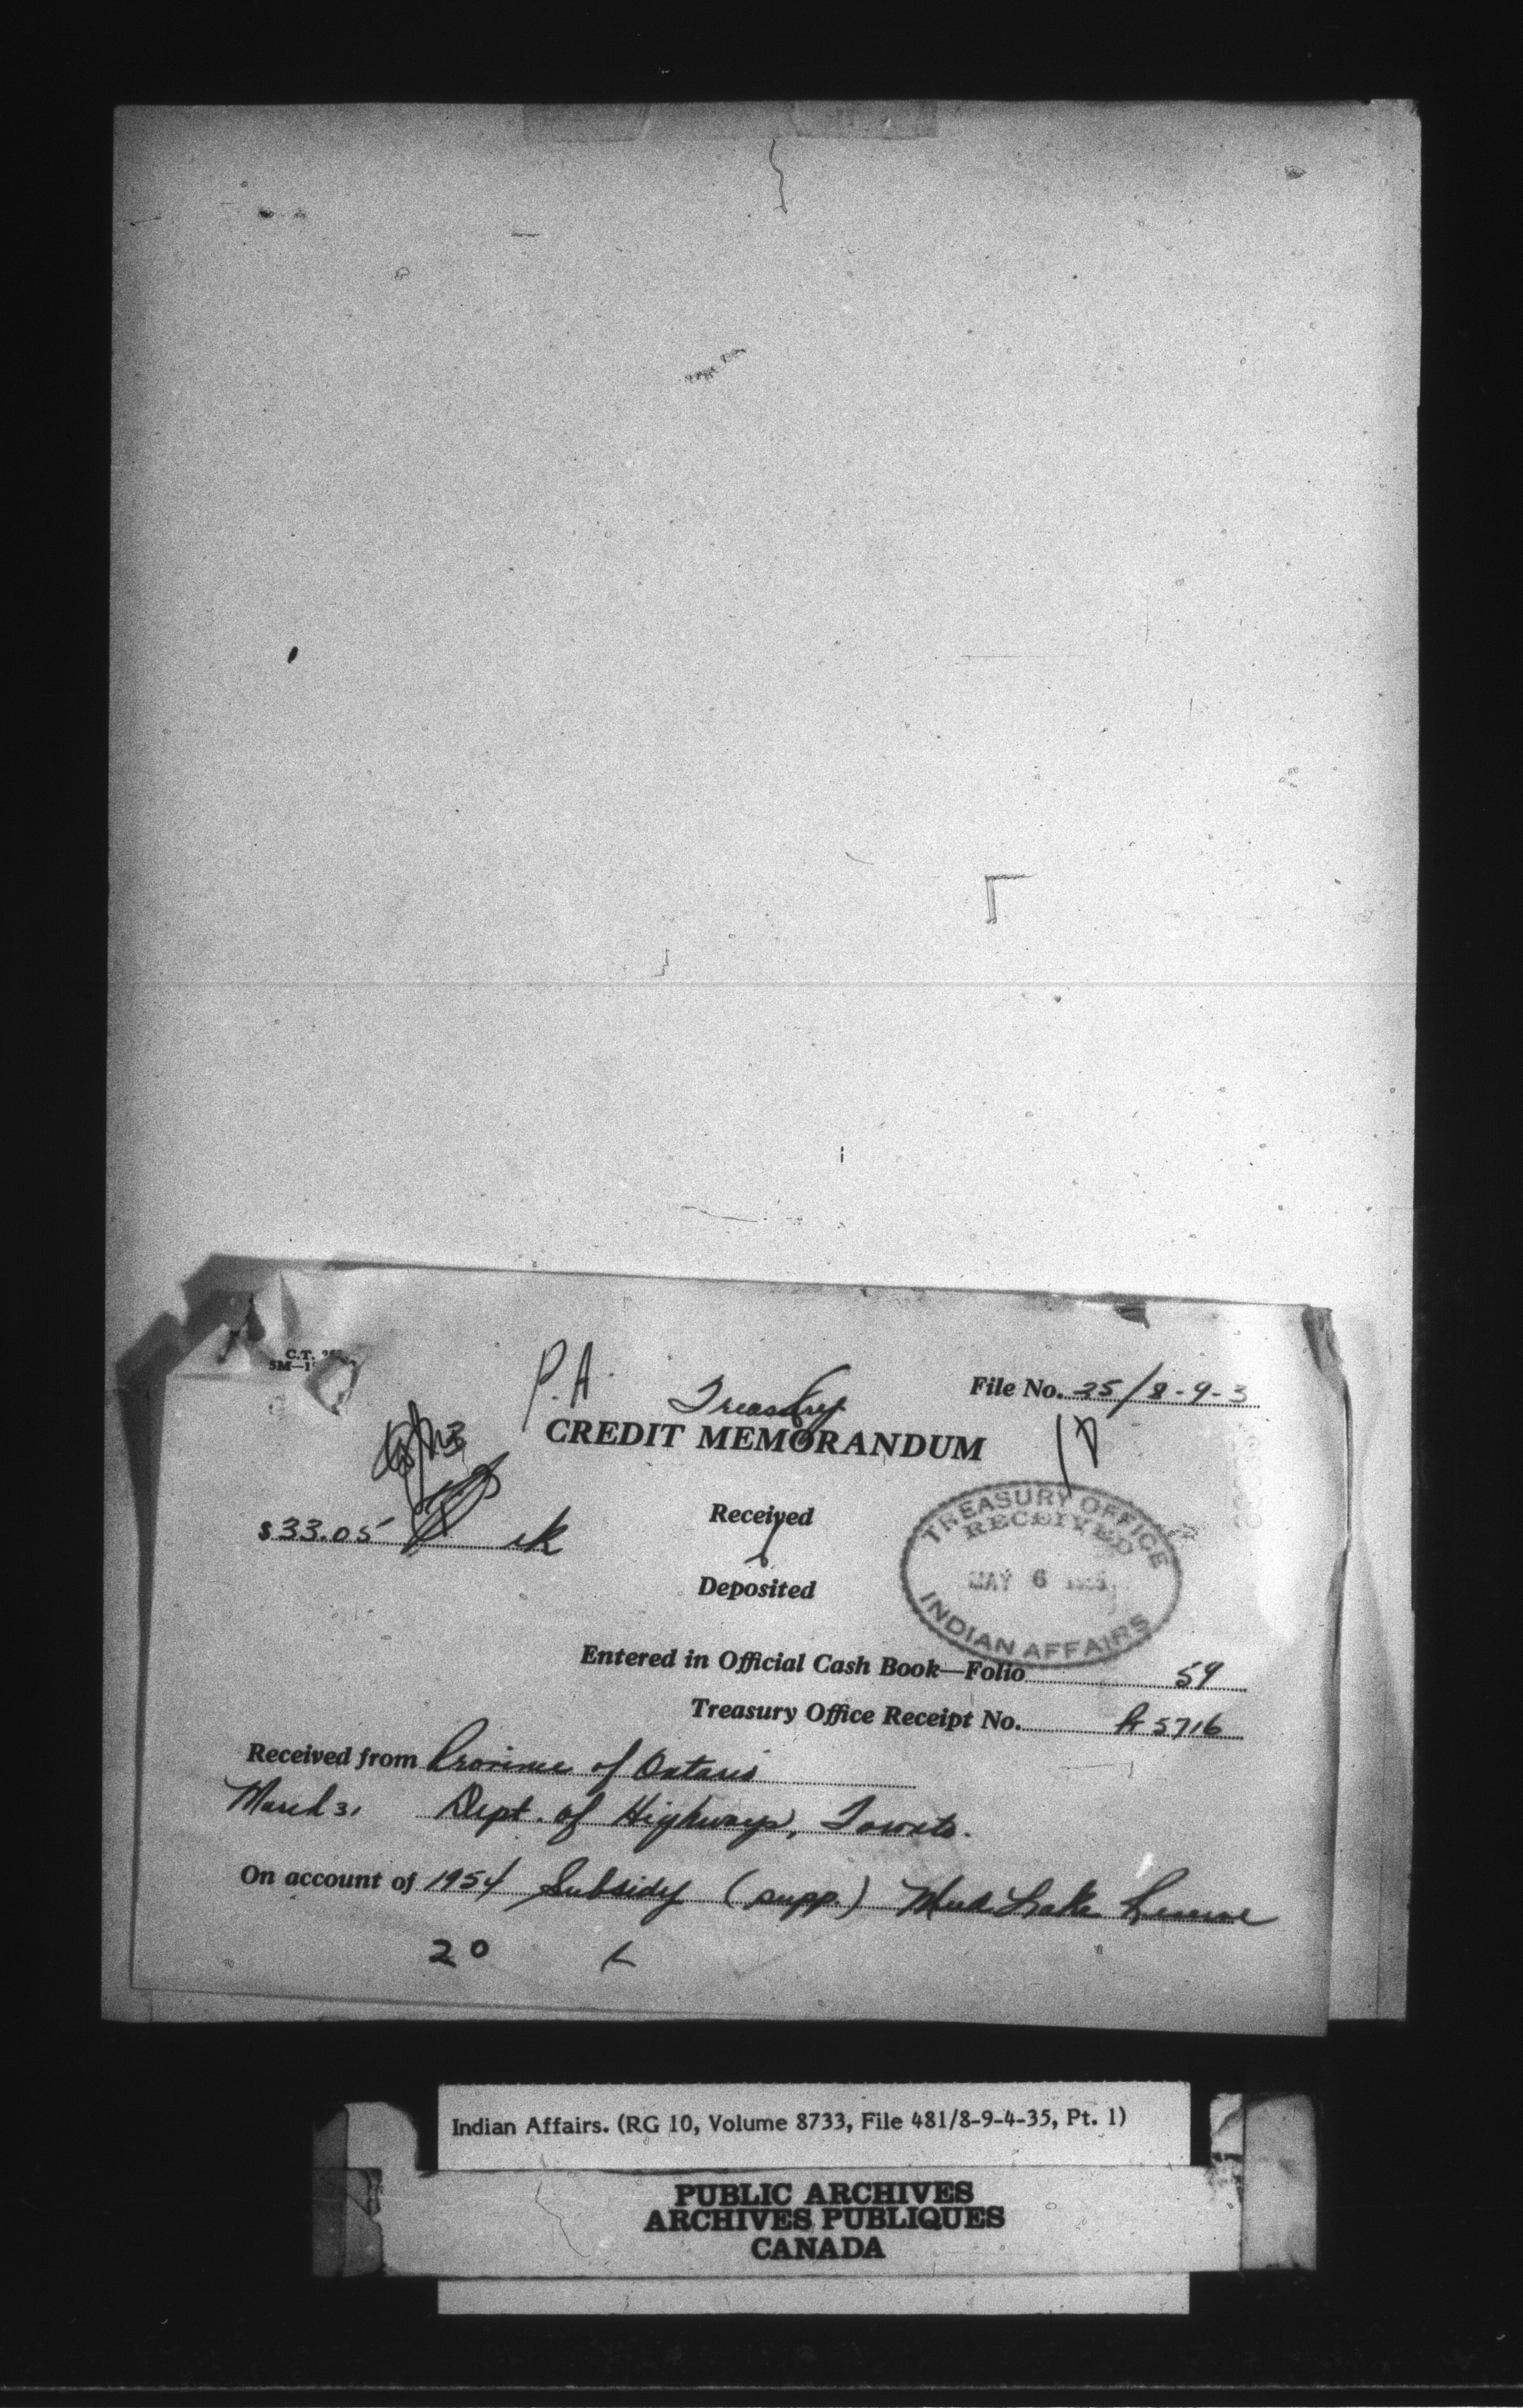 C.T.
5M—1
P.A.
File No. 35/8-9-3
Treasury
CREDIT MEMORANDUM
$33.05
Received
TREASURY OFFICE
RECEIVED
MAY 6
INDIAN AFFAIRS
Deposited
Entered in Official Cash Book—Folio 59
Treasury Office Receipt No. A 5716
Received from Province of Ontario
March 31 Dept. of Highways, Toronto.
On account of 1954 Subsidy (supp.) Mud Lake Reserve
20
Indian Affairs. (RG 10, Volume 8733, File 481/8-9-4-35, Pt. 1)
PUBLIC ARCHIVES
ARCHIVES PUBLIQUES
CANADA